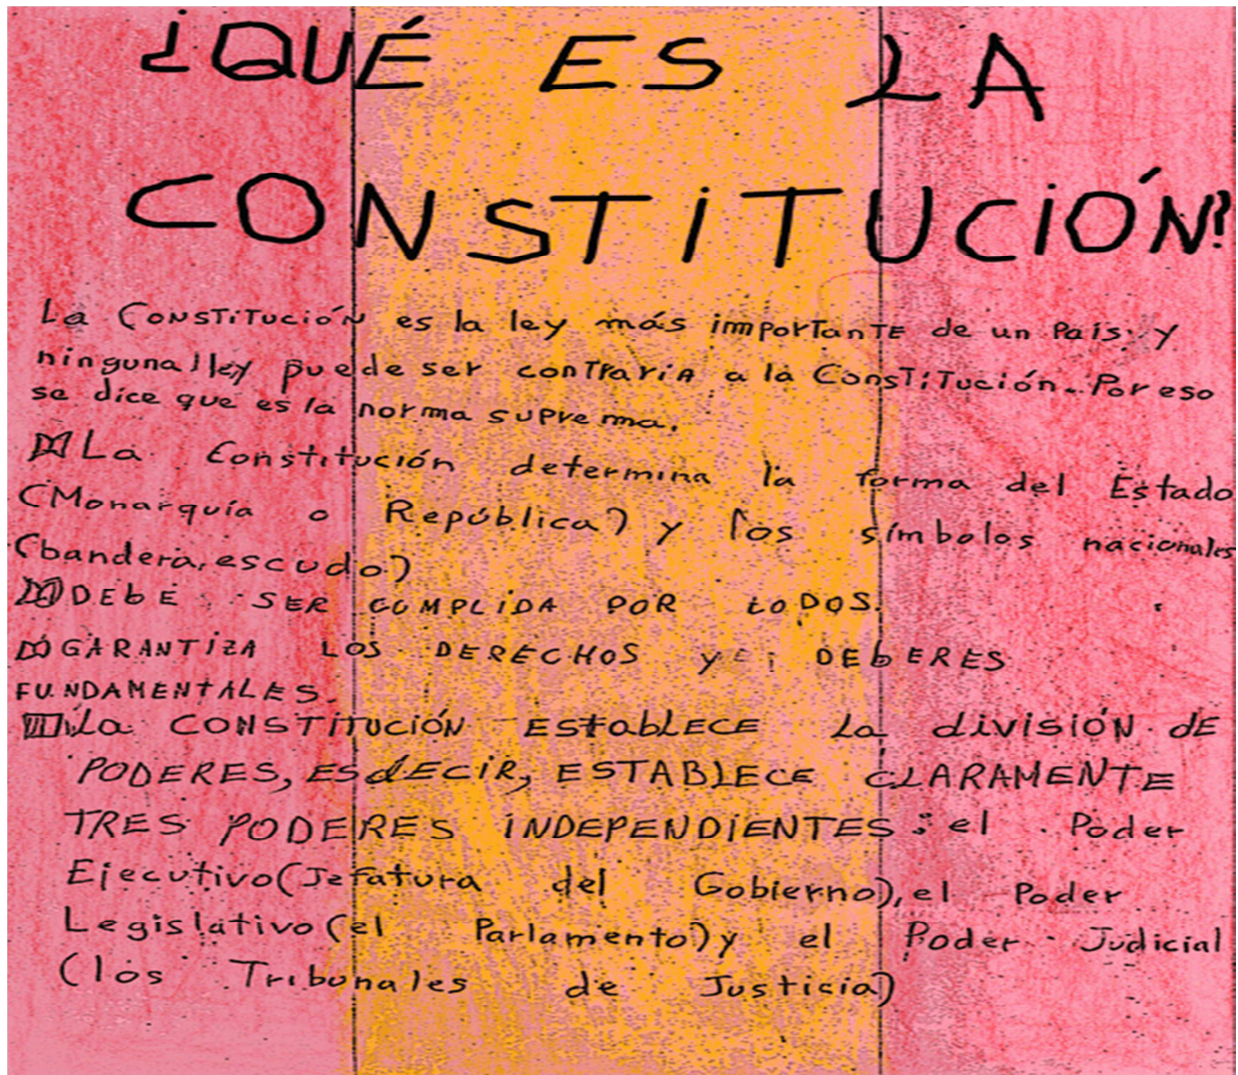 ¿QUÉ ES LA
CONSTITUCIÓN?
La Constitución es la ley más importante de un País y
ninguna ley puede ser contraria a la Constitución. Por eso
se dice que es la norma suprema.
La Constitución determina la forma del Estado
(Monarquía o República) y los símbolos nacionales
(bandera, escudo)
DEbE SER CUMPLIDA POR tODOS.
GARANTIZA LOS DERECHOS y DEbERES
FUNDAMENTALES.
La CONSTITUCIÓN EStabLECE La división DE
PODERES, ES dECIR, ESTABLECE CLARAMENTE
TRES PODERES INDEPENDIENTES: el Poder
Ejecutivo (Jefatura del Gobierno), el Poder
Legislativo (el Parlamento) y el Poder Judicial
(los Tribunales de Justicia)